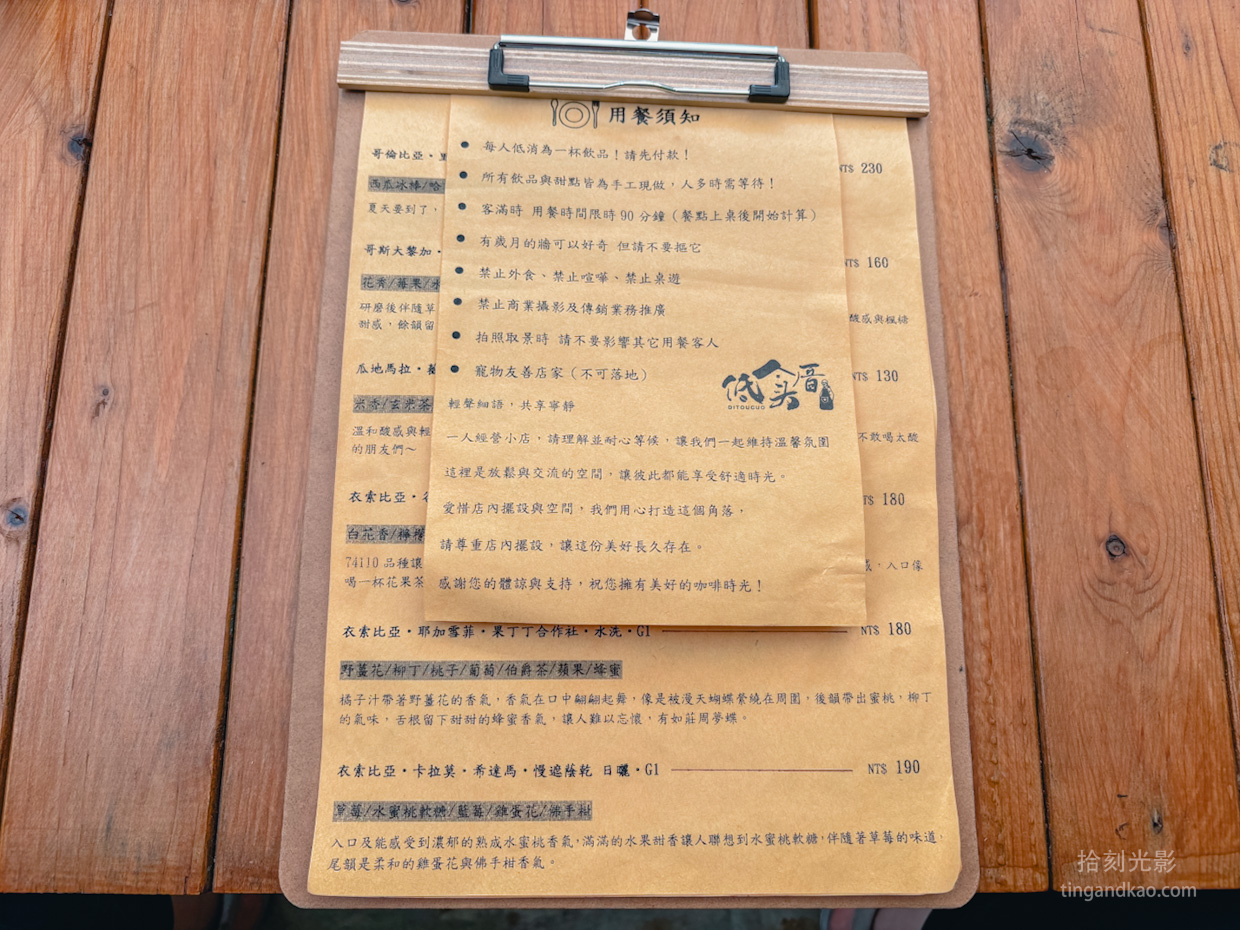 用餐須知
● 每人低消為一杯飲品！請先付款！
● 所有飲品與甜點皆為手工現做，人多時需等待！
● 客滿時 用餐時間限時90分鐘（餐點上桌後開始計算）
● 有歲月的牆可以好奇 但請不要摳它
● 禁止外食、禁止喧嘩、禁止桌遊
● 禁止商業攝影及傳銷業務推廣
● 拍照取景時 請不要影響其它用餐客人
● 寵物友善店家（不可落地）
DITOUCUO
輕聲細語，共享寧靜
一人經營小店，請理解並耐心等候，讓我們一起維持溫馨氛圍
這裡是放鬆與交流的空間，讓彼此都能享受舒適時光。
愛惜店內擺設與空間，我們用心打造這個角落，
請尊重店內擺設，讓這份美好長久存在。
感謝您的體諒與支持，祝您擁有美好的咖啡時光！
哥倫比亞・
NT$ 230
西瓜冰棒/哈
夏天要到了，
哥斯大黎加・
NT$ 160
花香/莓果/水
研磨後伴隨草
酸感與楓糖
甜感，餘韻留
瓜地馬拉・
NT$ 130
米香/玄米茶
溫和酸感與輕
不敢喝太酸
的朋友們～
衣索比亞・
NT$ 180
白花香/檸檬
74110 品種讓
感，入口像
喝一杯花果茶
衣索比亞・耶加雪菲・果丁丁合作社・水洗・G1 NT$ 180
野薑花/柳丁/桃子/葡萄/伯爵茶/蘋果/蜂蜜
橘子汁帶著野薑花的香氣，香氣在口中翩翩起舞，像是被漫天蝴蝶縈繞在周圍，後韻帶出蜜桃，柳丁
的氣味，舌根留下甜甜的蜂蜜香氣，讓人難以忘懷，有如莊周夢蝶。
衣索比亞・卡拉莫・希達馬・慢遮蔭乾 日曬・G1 NT$ 190
草莓/水蜜桃軟糖/藍莓/雞蛋花/佛手柑
入口及能感受到濃郁的熟成水蜜桃香氣，滿滿的水果甜香讓人聯想到水蜜桃軟糖，伴隨著草莓的味道，
尾韻是柔和的雞蛋花與佛手柑香氣。
拾刻光影
tingandkao.com